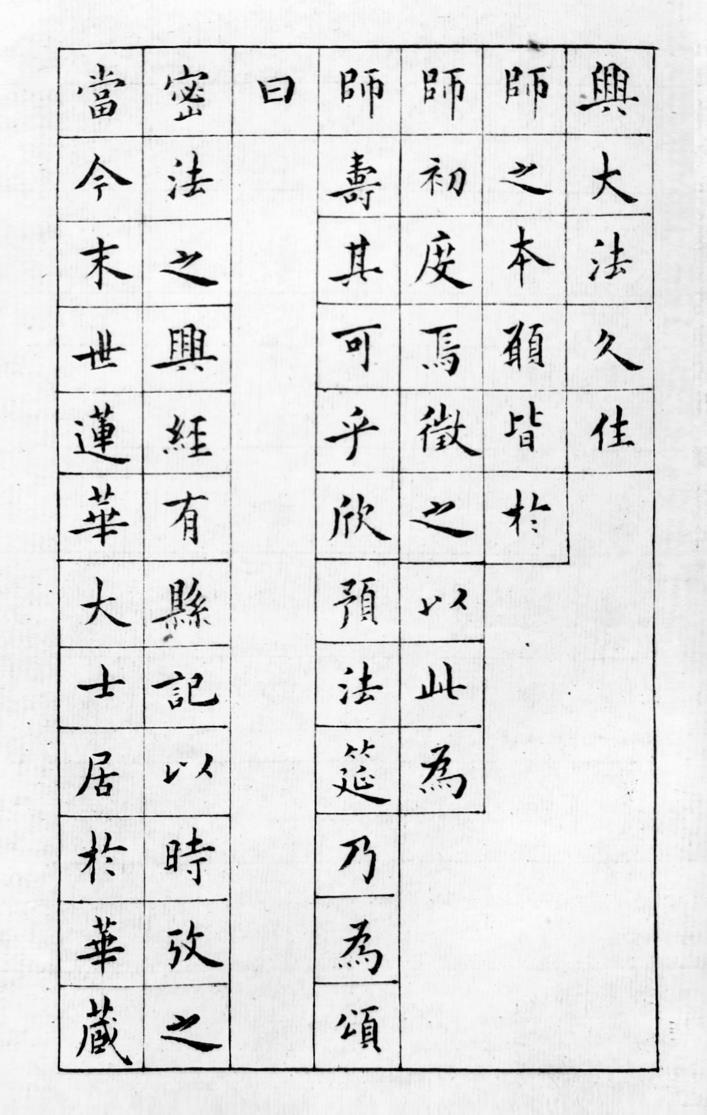 興大法久住
師之本願皆於
師初度焉徵之以此為
師壽其可乎欣預法筵乃為頌
曰
密法之興經有縣記以時攷之
當今末世蓮華大士居於華藏